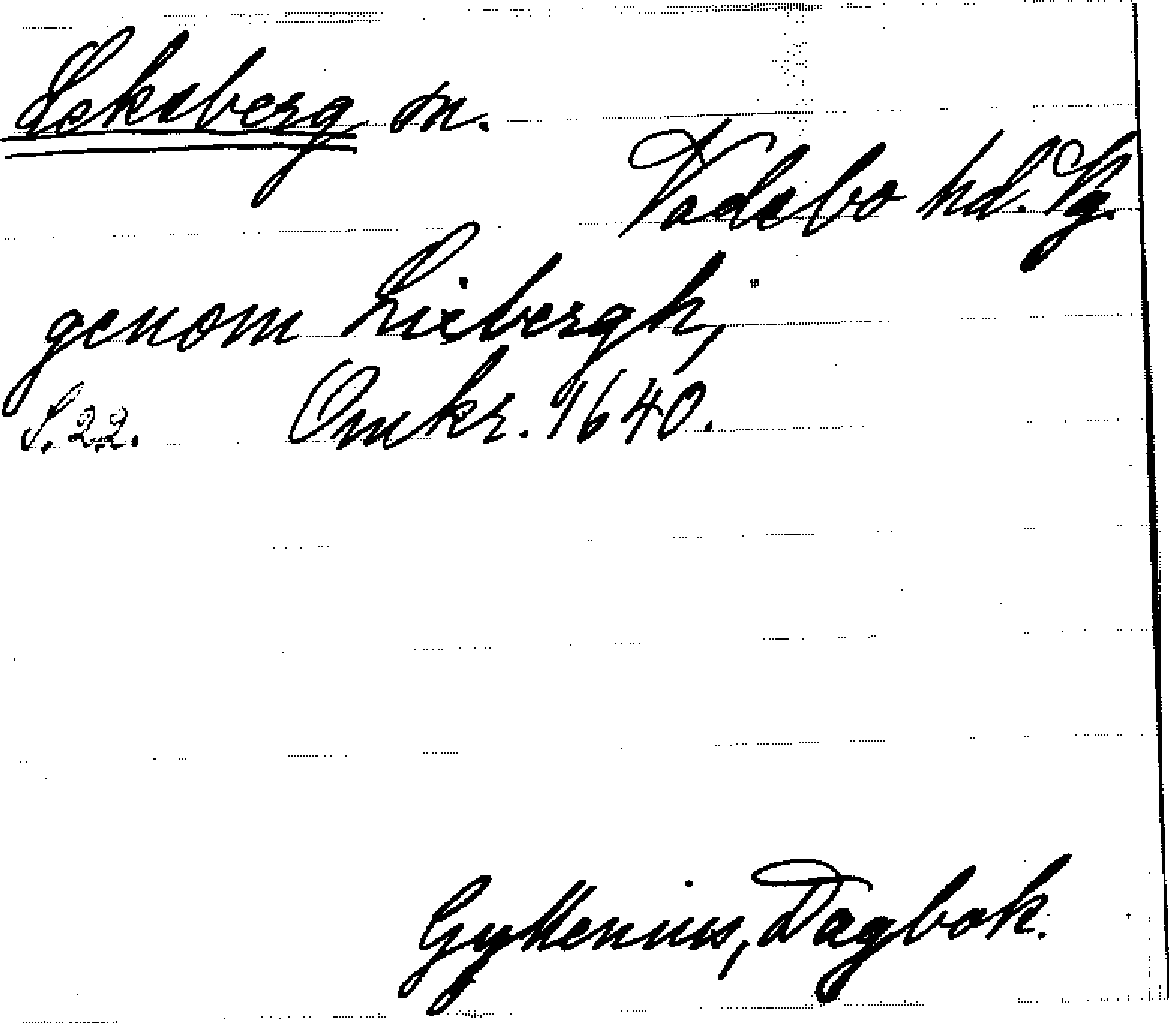 Leksberg sn.
Vadsbo hd. Vg.
genom Lixbergh,
S. 22. Omkr. 1640.
Gyllenius, Dagbok.